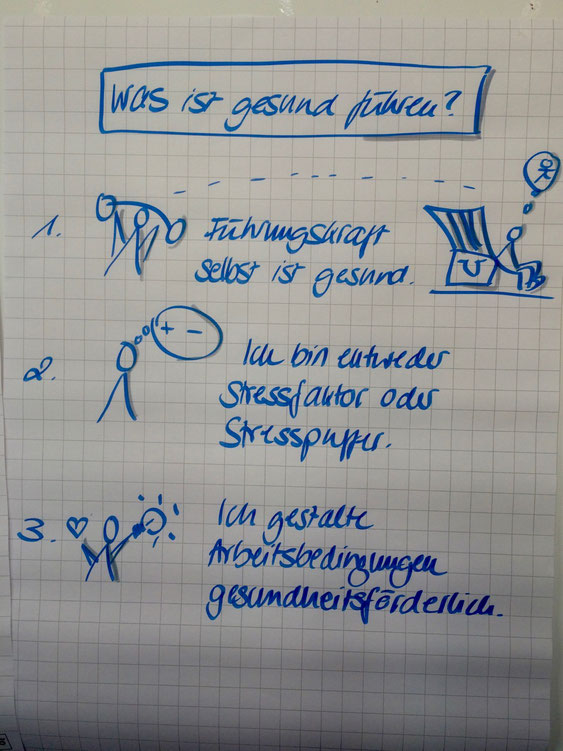 Was ist gesund führen?
1. Führungskraft
selbst ist gesund.
2. + -
Ich bin entweder
Stressfaktor oder
Stresspuffer.
3. Ich gestalte
Arbeitsbedingungen
gesundheitsförderlich.